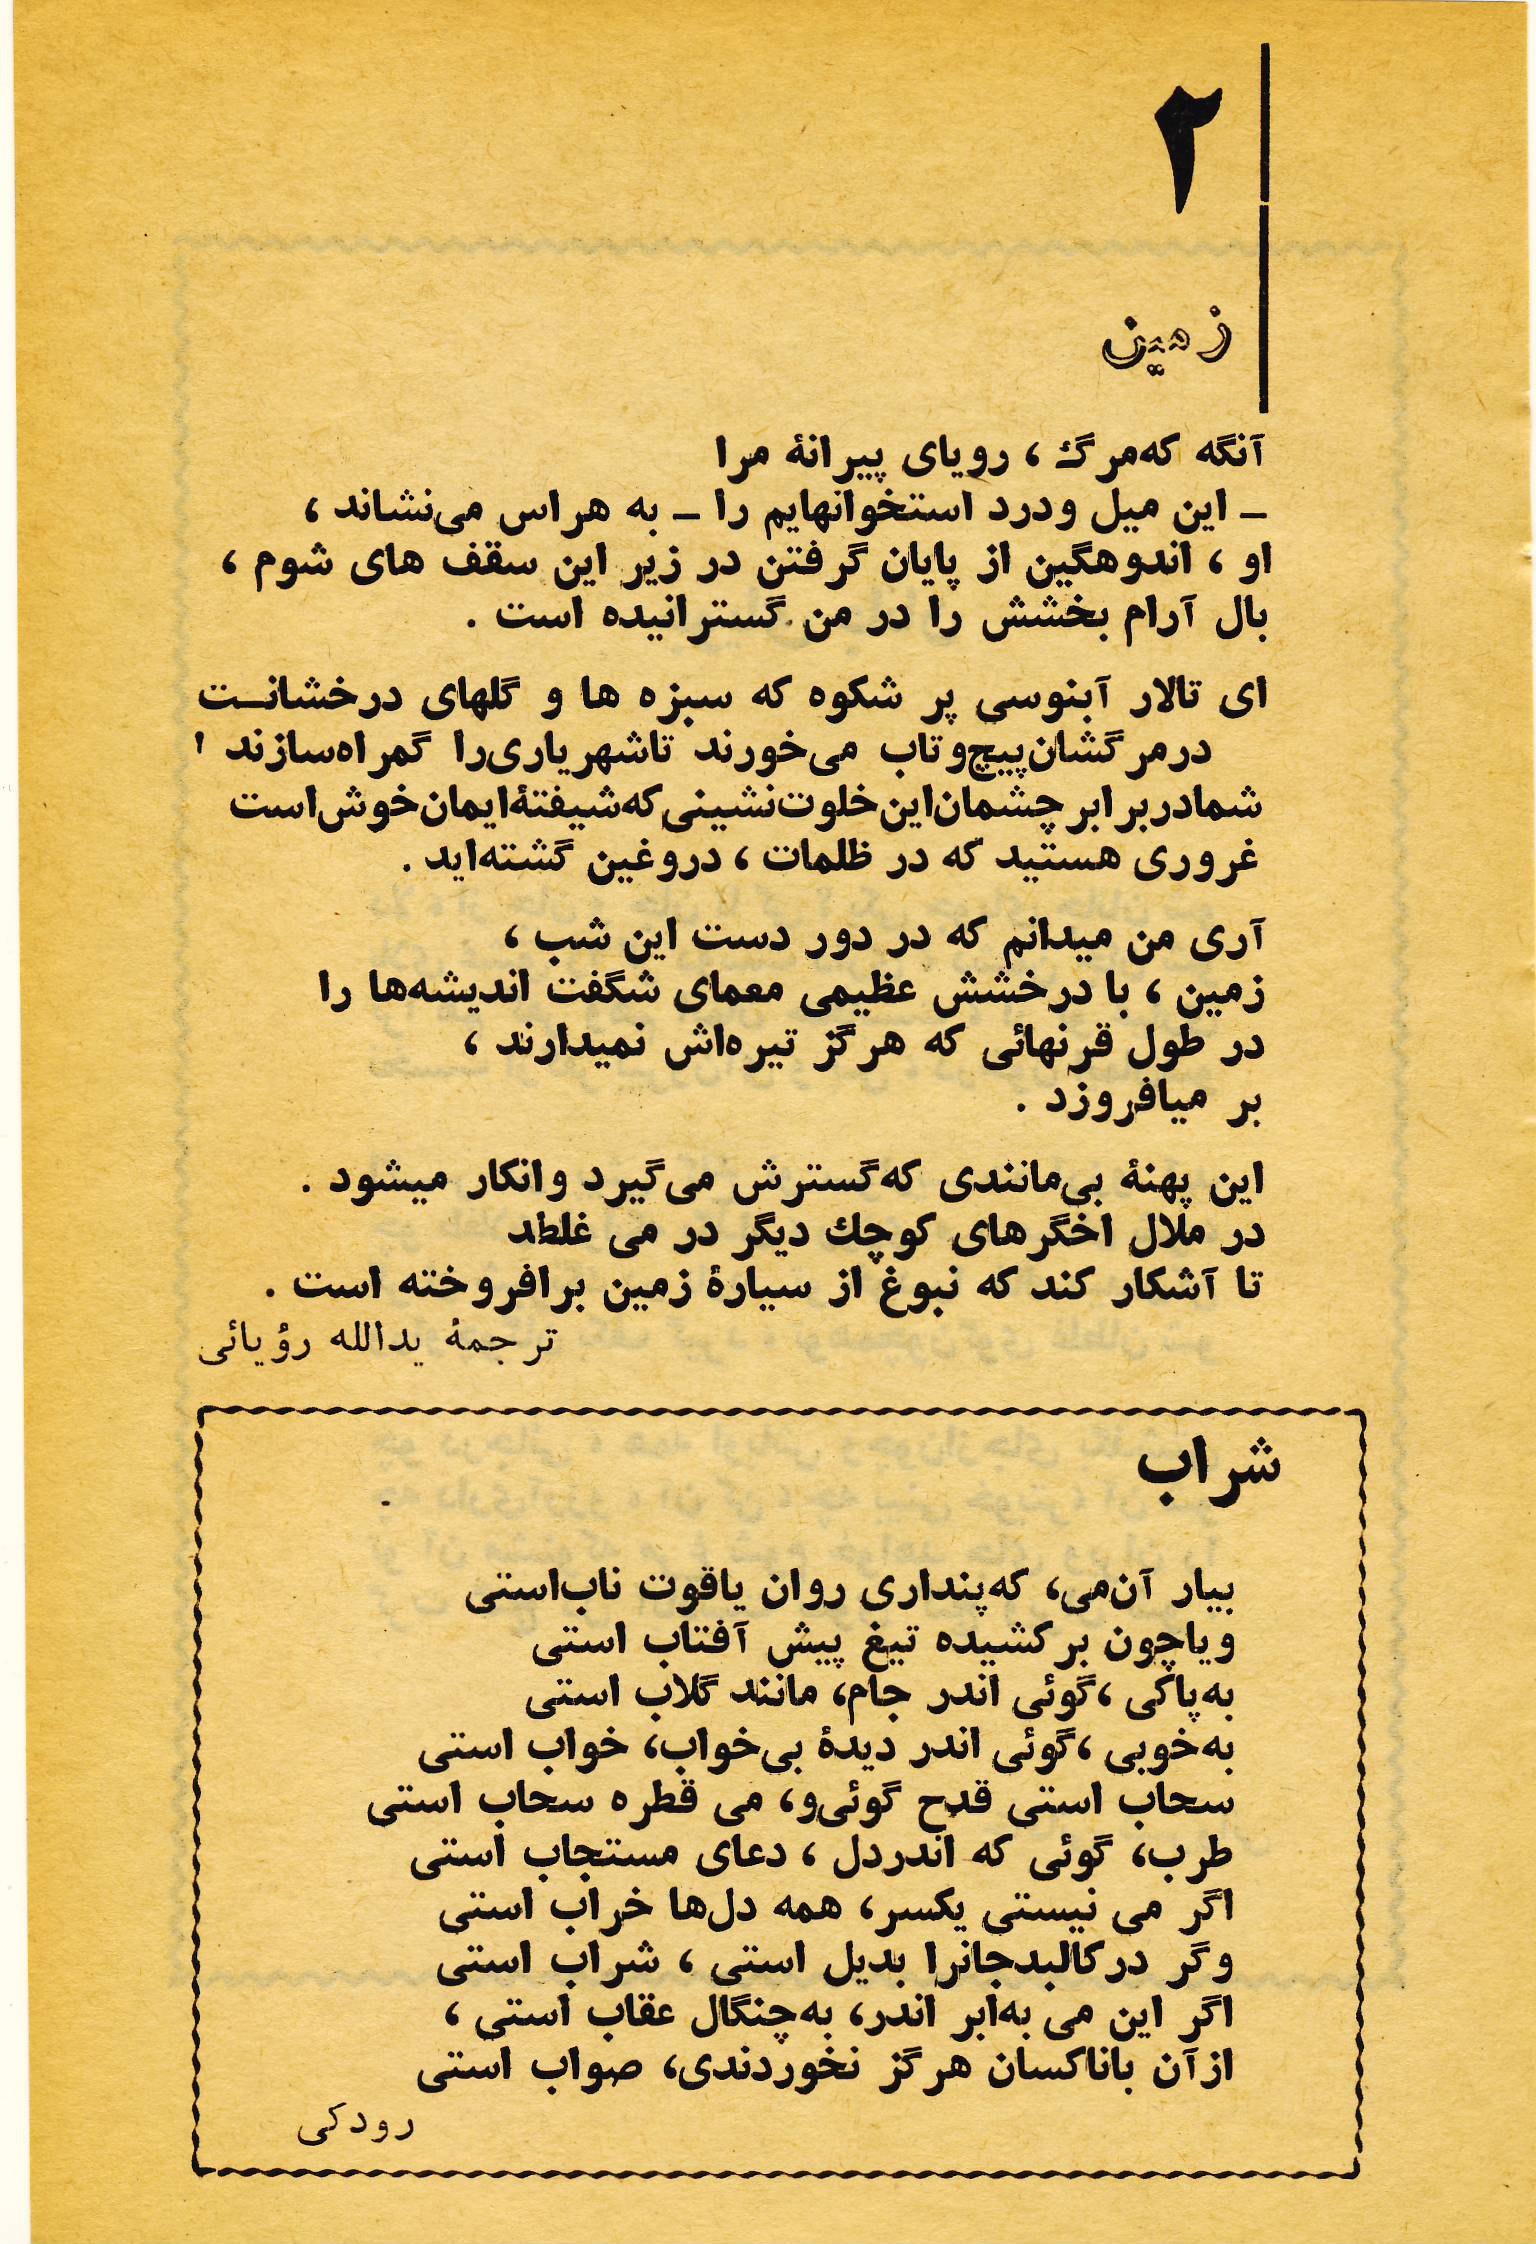 ۲
زمین
آنگه که‌مرگ ، رویای پیرانهٔ مرا
ـ این میل ودرد استخوانهایم را ـ به هراس می‌نشاند ،
او ، اندوهگین از پایان گرفتن در زیر این سقف های شوم ،
بال آرام بخشش را در من گسترانیده است .
ای تالار آبنوسی پر شکوه که سبزه ها و گلهای درخشانـت
درمرگشان‌پیچ‌وتاب می‌خورند تاشهریاری‌را گمراه‌سازند
شمادربرابر چشمان‌این‌خلوت‌نشینی‌که‌شیفتهٔ‌ایمان‌خوش‌است
غروری هستید که در ظلمات ، دروغین گشته‌اید .
آری من میدانم که در دور دست این شب ،
زمین ، با درخشش عظیمی معمای شگفت اندیشه‌ها را
در طول قرنهائی که هرگز تیره‌اش نمیدارند ،
بر میافروزد .
این پهنهٔ بی‌مانندی که‌گسترش می‌گیرد وانکار میشود .
در ملال اخگرهای کوچك دیگر در می غلطد
تا آشکار کند که نبوغ از سیارهٔ زمین برافروخته است .
ترجمهٔ یدالله رؤیائی
شراب
بیار آن‌می، که‌پنداری روان یاقوت ناب‌استی
ویاچون برکشیده تیغ پیش آفتاب استی
به‌پاکی ،گوئی اندر جام، مانند گلاب استی
به‌خوبی ،گوئی اندر دیدهٔ بی‌خواب، خواب استی
سحاب استی قدح گوئی‌و، می قطره سحاب استی
طرب، گوئی که اندردل ، دعای مستجاب استی
اگر می نیستی یکسر، همه دل‌ها خراب استی
وگر درکالبدجانرا بدیل استی ، شراب استی
اگر این می به‌ابر اندر، به‌چنگال عقاب استی ،
ازآن باناکسان هرگز نخوردندی، صواب استی
رودکی